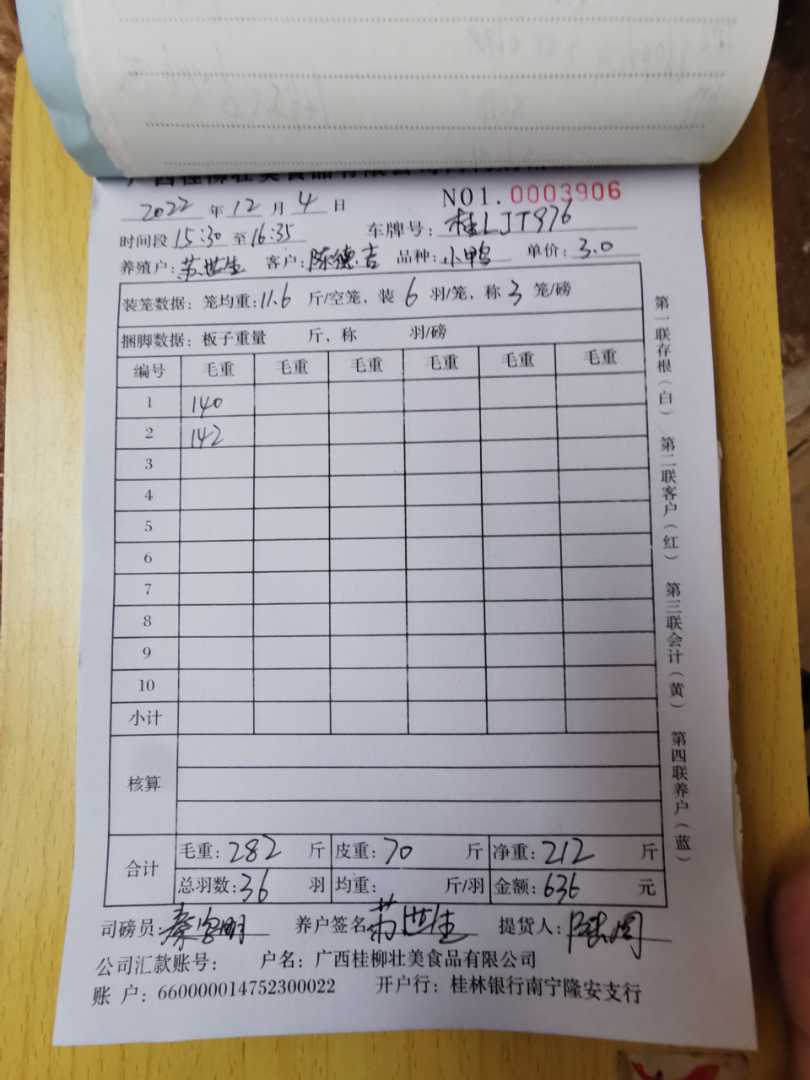 NO1.0003906
2022 年 12 月 4 日
时间段 15:30 至 16:35 车牌号: 桂LJT976
养殖户: 苏世生 客户: 陈德吉 品种: 小鸭 单价: 3.0
装笼数据: 笼均重: 11.6 斤/空笼, 装 6 羽/笼, 称 3 笼/磅
捆脚数据: 板子重量 斤, 称 羽/磅
编号 毛重 毛重 毛重 毛重 毛重 毛重
1 140
2 142
3
4
5
6
7
8
9
10
小计
核算
合计 毛重: 282 斤 皮重: 70 斤 净重: 212 斤
总羽数: 36 羽 均重: 斤/羽 金额: 636 元
司磅员 养户签名 苏世生 提货人:
公司汇款账号: 户名: 广西桂柳壮美食品有限公司
账 户: 660000014752300022 开户行: 桂林银行南宁隆安支行
第一联存根(白) 第二联客户(红) 第三联会计(黄) 第四联养户(蓝)